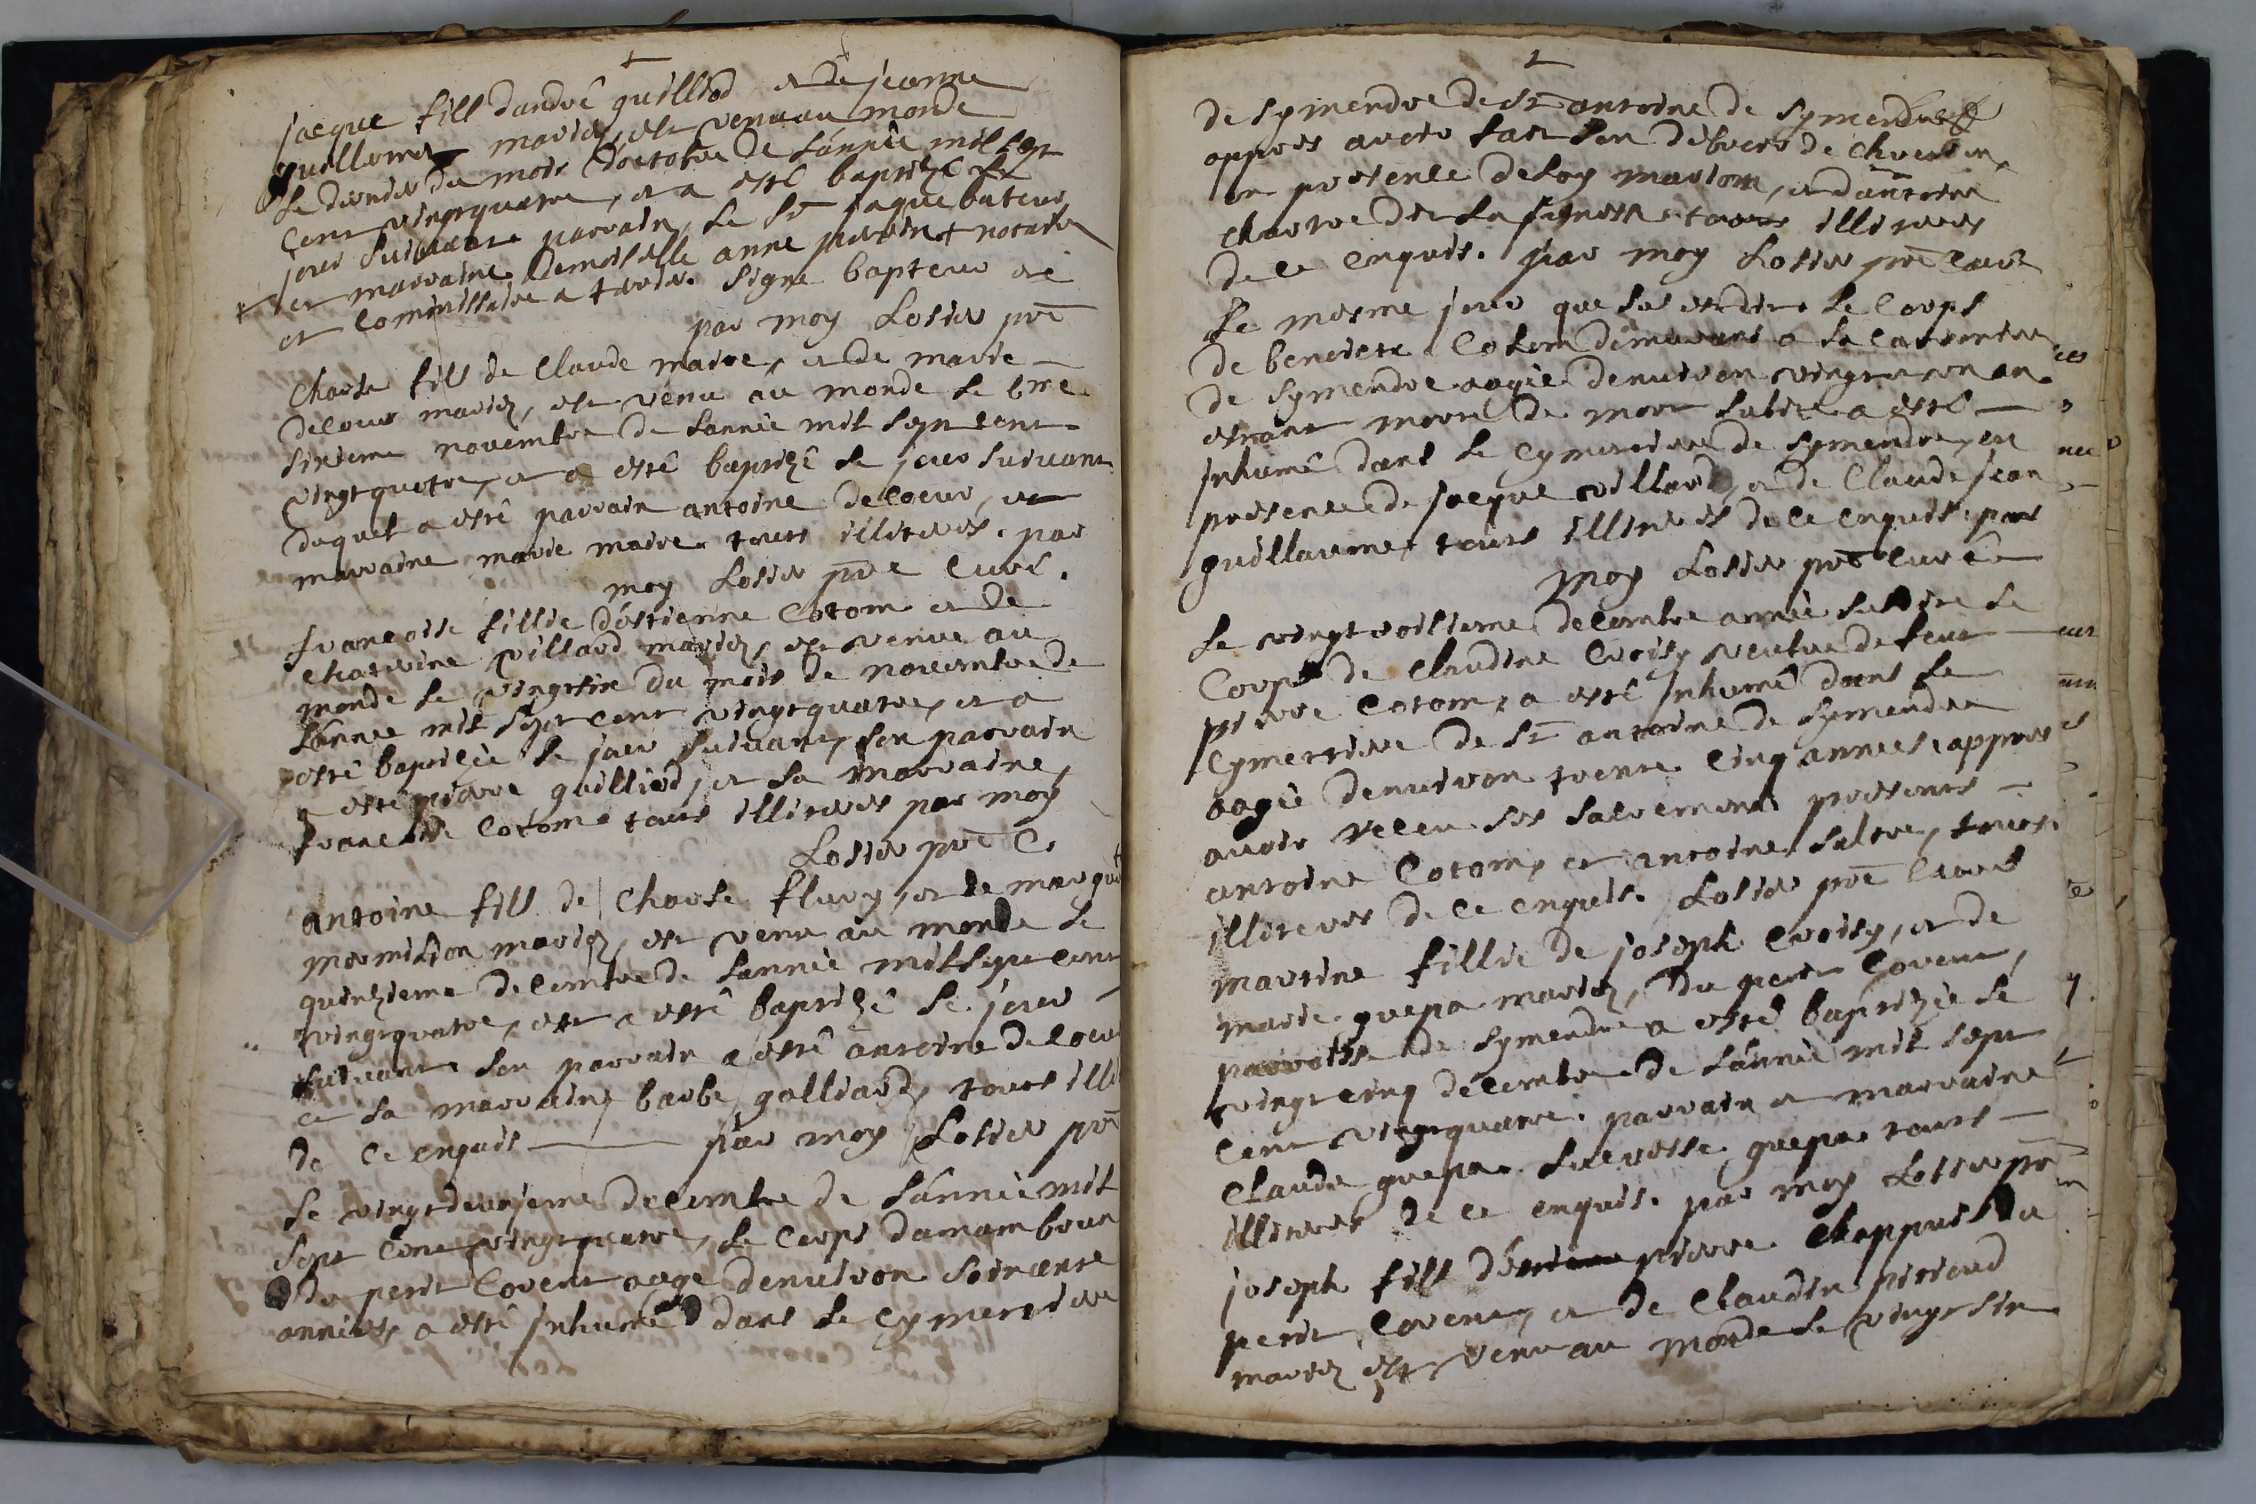 jacque fill dandrê guilliod et de jeanne
guillermet mariez, est venu au monde
le dernier du mois doctobre de lánnée mil sept
cent vingtquatre, et a esté baptizé le
jour suivant parrain, le sr jaque bateur
et marraine Demoiselle anne notaire
et commissaire a signe bapteur et
par moy Losier pre
Charle fils de Claude maire, et de marie
deloeur mariez, est venu au monde le
sixieme novembre de lannée mil sept cent
vingtquatre, et a estê baptizê le jour suivant
duquel a estê parrain antoine deloeur, et
marraine marie maire tous illiterés. par
moy Losier pre curé.
francoise fillie déstienne Cotom et de
Chaterine villard mariez, est venue au
monde le vingtsix du mois de novembre de
lánnée mil sept cent vingtquatre, et a
estê baptizée le jour suivant, son parrain
a esté pierre guilliod, et sa marraine,
francoise Cotom tous illiterés par moy
Losier pre C.
antoine fill de Charle fleury, et de margu
mermillon mariez, est venu au monde le
quinzieme decembre de lannée mil sept cent
vingtquatre, est a estê baptizê le jour
suivant son parrain a estê antoine deloeur
et sa marraine barbe galliard, tous illi
de ce enquis par moy Losier pre
Le vingt deuxieme decembre de lánnée mil
sept cent vingtquatre, le corps damam bour
du petit Covent aagé denviron soixante
années a esté inhumé dans le cymettiere
de symendre de st antoine de symendre
appres avoir fait son debvoir de chrestien
en presence de loy mariom, et dantoine
charve de la tous illiterés
de ce enquis. par moy Losier pre curé
Le mesme jour que sus est dit le corps
de benoiste Cotom demeurant a la
de symendre aagée denviron vingt un an
estant morte de mort subite a esté
inhumê dans le cymettiere de symendre, en
presence de jacque villard, et de Claude jean
guillaume, tous illiterés de ce enquis. par
moy Losier pre curé
Le vingt troisieme decembre année susdite le
corps de Claudine Croisy veufve de feu
pierre Cotom, a estê inhumê dans le
cymettiere de st antoine de symendre
aagée denviron trente cinq années, appres
avoir receu ses sacrements presents
antoine Cotom, et antoine sultre, tous
illiterés de ce enquis. Losier pre curé
martine fillie de joseph Croisy, et de
marie guepa mariez, du petit Covent,
parroisse de symendre a estê baptizée le
vingt cinq decembre de lánnée mil sept
cent vingtquatre. parrain et marraine
Claude guepa. guepa tous
illiterés de ce enquis. par moy Losier pre
joseph fill dé pierre Chappuis du
petit Covent, et de Claudine pitioud
mariez est venu au monde le vingtsix